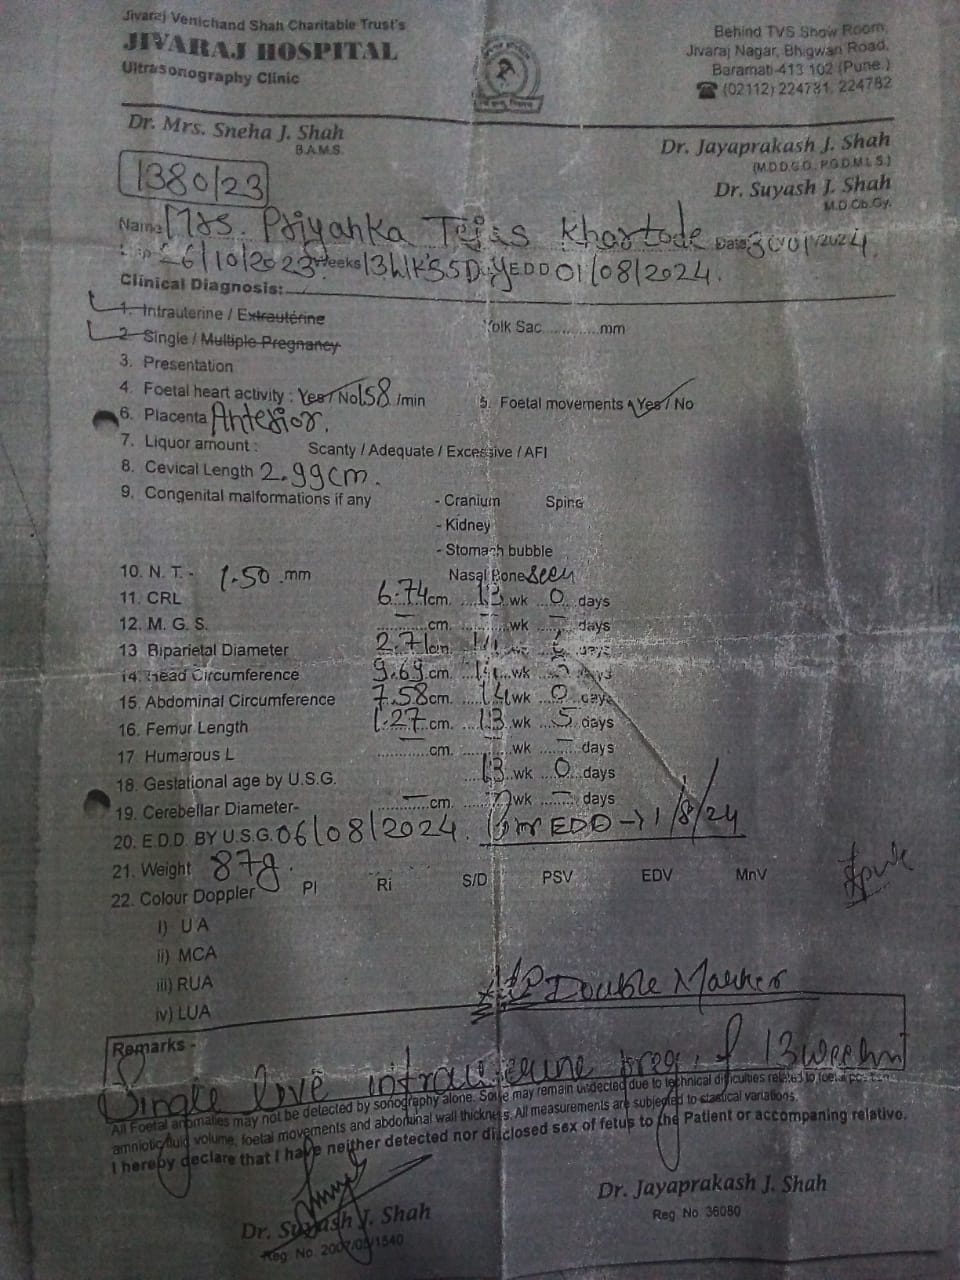 Jivaraj Venichand Shah Charitable Trust's
JIVARAJ HOSPITAL
Ultrasonography Clinic
Behind TVS Show Room,
Jivaraj Nagar, Bhigwan Road,
Baramati-413 102 (Pune.)
☎ (02112) 224781, 224782
Dr. Mrs. Sneha J. Shah
B.A.M.S.
Dr. Jayaprakash J. Shah
(M.D.D.G.O., P.G.D.M.L.S.)
Dr. Suyash J. Shah
M.D.Ob.Gy.
1380/23
Name Mrs. Priyanka Tejas Khartode Date 30/01/2024
26/10/2023 Weeks 13WK's 5D EDD 01/08/2024.
Clinical Diagnosis:
1. Intrauterine / Extrauterine Yolk Sac............mm
2. Single / Multiple Pregnancy
3. Presentation
4. Foetal heart activity : Yes / No 158 /min 5. Foetal movements Yes / No
6. Placenta Anterior.
7. Liquor amount : Scanty / Adequate / Excessive / AFI
8. Cevical Length 2.99cm.
9. Congenital malformations if any - Cranium Spine
- Kidney
- Stomach bubble
10. N. T. - 1.50 mm Nasal Bone seen
11. CRL 6.74 cm. 13 wk 0 days
12. M. G. S. - cm. - wk - days
13 Biparietal Diameter 2.71 cm.
14. Head Circumference 9.69 cm. 14 wk days
15. Abdominal Circumference 7.58 cm. 14 wk 0 days
16. Femur Length 1.27 cm. 13 wk 5 days
17 Humerous L - cm. - wk - days
18. Gestational age by U.S.G. 13 wk 0 days
19. Cerebellar Diameter- - cm. wk - days
20. E.D.D. BY U.S.G. 06/08/2024. EDD → 1/8/24
21. Weight 87g.
22. Colour Doppler PI Ri S/D PSV EDV MnV
i) U A
ii) MCA
iii) RUA
iv) LUA
Double Marker
Remarks -
Single live intrauterine preg. of 13 weeks
All Foetal anomalies may not be detected by sonography alone. Some may remain undected due to technical difficulties related to foetal position
amniotic fluid volume, foetal movements and abdominal wall thickness. All measurements are subjected to stastical variations.
I hereby declare that I have neither detected nor disclosed sex of fetus to the Patient or accompaning relative.
Dr. Suyash J. Shah
Reg. No. 2007/05/1540
Dr. Jayaprakash J. Shah
Reg. No. 36080